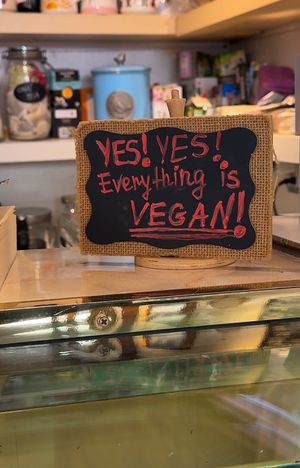 YES! YES!
Everything is
VEGAN!